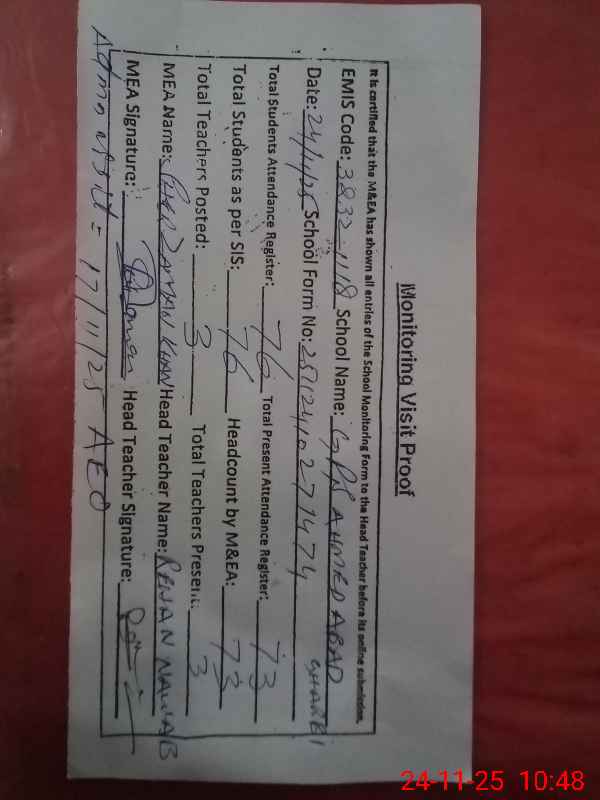 Monitoring Visit Proof
It is certified that the M&EA has shown all entries of the School Monitoring Form to the Head Teacher before its online submission.
EMIS Code: 38321118 School Name: GPS AHMED ABAD
GHARBI
Date: 24/11/25 School Form No: 251124/0271474
Total Students Attendance Register: 76 Total Present Attendance Register: 73
Total Students as per SIS: 76 Headcount by M&EA: 73
Total Teachers Posted: 3 Total Teachers Present: 3
MEA Name: ZAMAN KHAN Head Teacher Name: REHAN NAWAB
MEA Signature: Head Teacher Signature:
Admn visit = 17/11/25 AEO
24-11-25 10:48